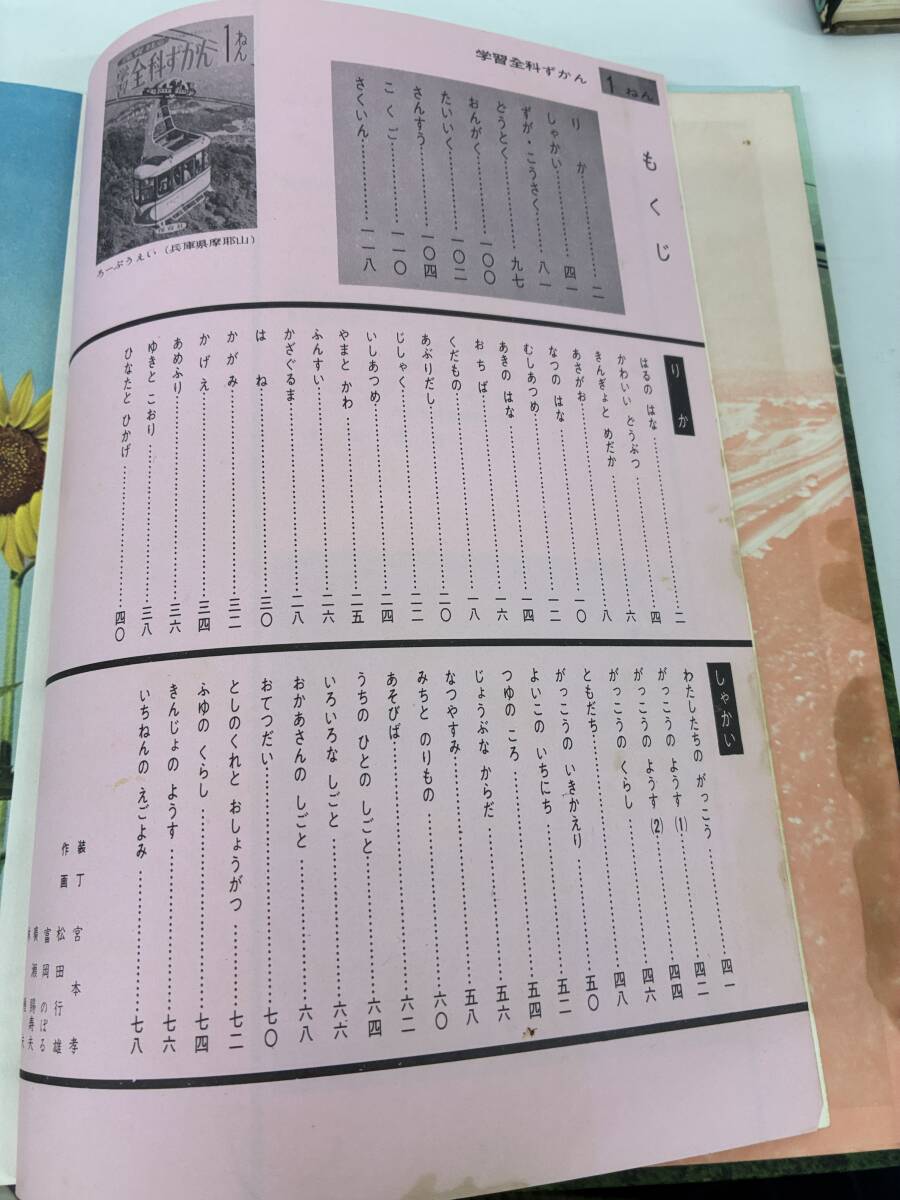 学習全科ずかん 1ねん
もくじ
りか……二
しゃかい……四一
ずが・こうさく……八一
どうとく……九七
おんがく……一〇〇
たいいく……一〇二
さんすう……一〇四
こくご……一一〇
さくいん……一一八
全科ずかん 1ねん
ろーぷうえい(兵庫県摩耶山)
りか
はるの はな……二
かわいい どうぶつ……四
きんぎょと めだか……六
あさがお……八
なつの はな……一〇
むしあつめ……一二
あきの はな……一四
おちば……一六
くだもの……一八
あぶりだし……二〇
じしゃく……二二
いしあつめ……二四
やまと かわ……二五
ふんすい……二六
かざぐるま……二八
はね……三〇
かがみ……三二
かげえ……三四
あめふり……三六
ゆきと こおり……三八
ひなたと ひかげ……四〇
しゃかい
わたしたちの がっこう……四一
がっこうの ようす(1)……四二
がっこうの ようす(2)……四四
がっこうの くらし……四六
ともだち……四八
がっこうの いきかえり……五〇
よいこの いちにち……五二
つゆの ころ……五四
じょうぶな からだ……五六
なつやすみ……五八
みちと のりもの……六〇
あそびば……六二
うちの ひとの しごと……六四
いろいろな しごと……六六
おかあさんの しごと……六八
おてつだい……七〇
としのくれと おしょうがつ……七二
ふゆの くらし……七四
きんじょの ようす……七六
いちねんの えごよみ……七八
装丁 宮本孝
作画 松田行雄
富岡のぼる